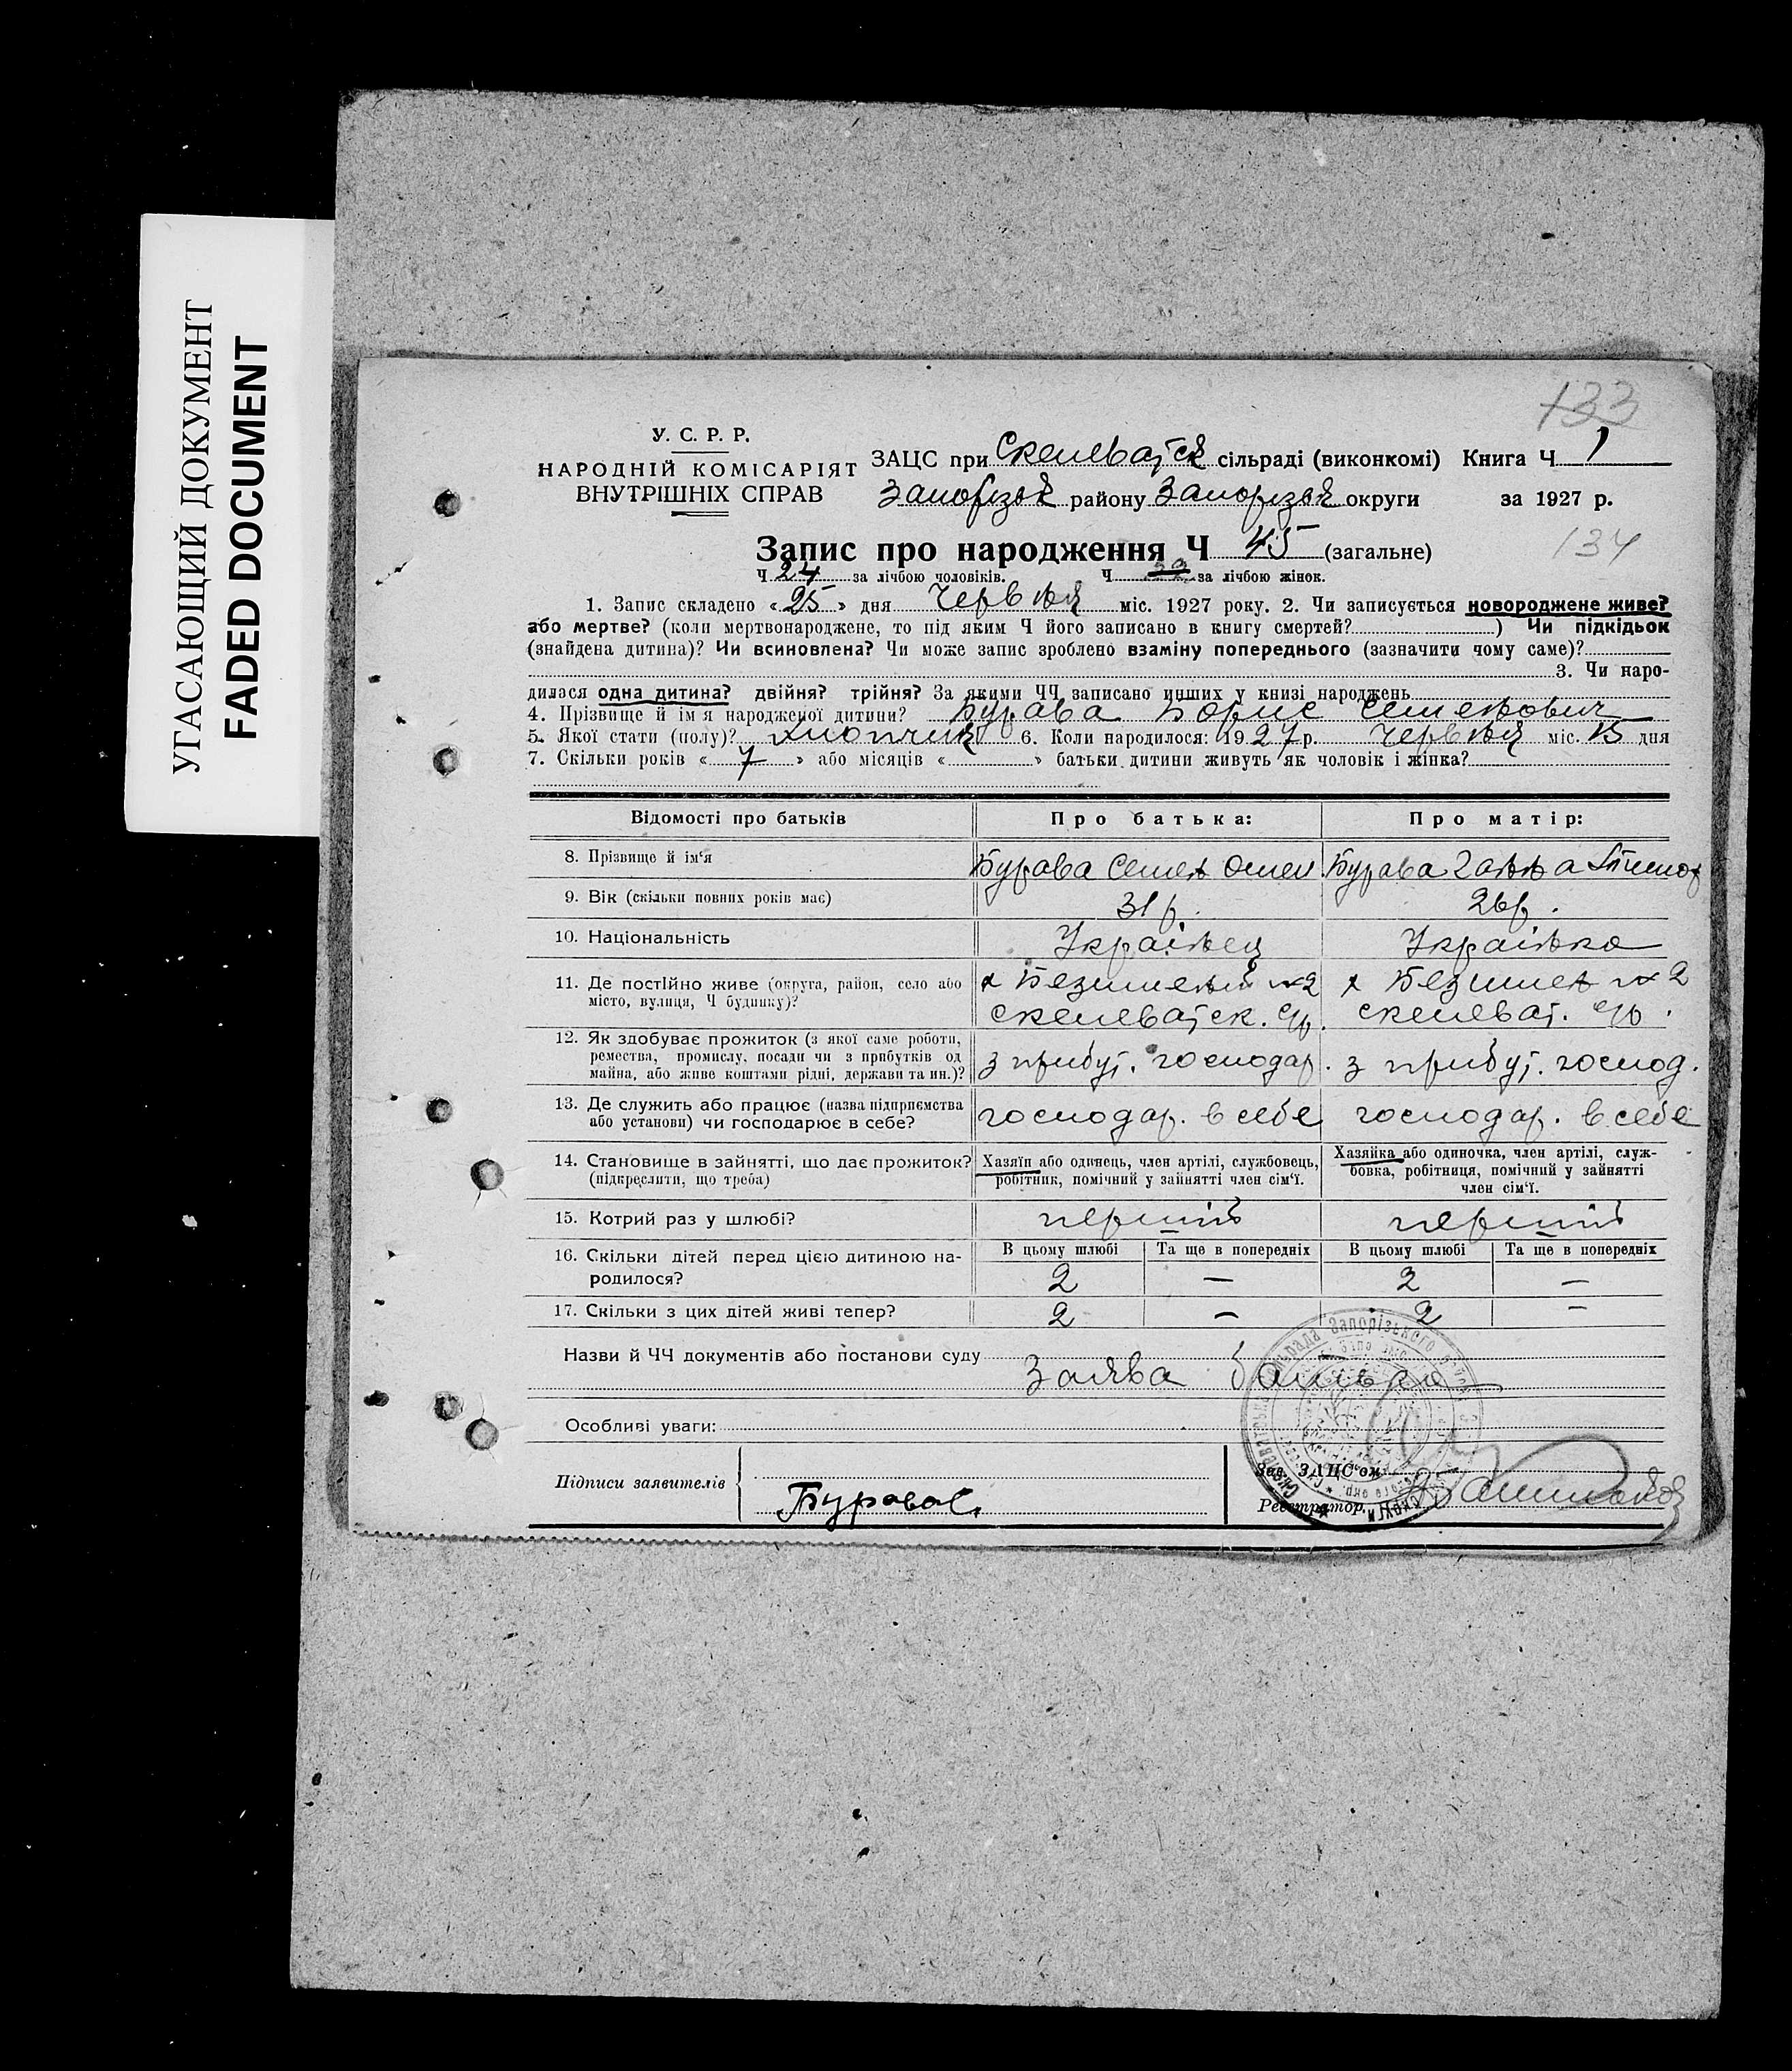 УГАСАЮЩИЙ ДОКУМЕНТ
FADED DOCUMENT
133
У. С. Р. Р.
НАРОДНІЙ КОМІСАРІЯТ
ВНУТРІШНІХ СПРАВ
ЗАЦС при Скелеватск сільраді (виконкомі) Книга Ч 1
Запорізьк району Запорізьк округи за 1927 р.
134
Запис про народження Ч 45 (загальне)
Ч 24 за лічбою чоловіків. Ч за лічбою жінок.
1. Запис складено « 25 » дня Червня міс. 1927 року. 2. Чи записується новороджене живе?
або мертве? (коли мертвонароджене, то під яким Ч його записано в книгу смертей? ) Чи підкідьок
(знайдена дитина)? Чи всиновлена? Чи може запис зроблено взаміну попереднього (зазначити чому саме)?
3. Чи наро-
дилася одна дитина? двійня? трійня? За якими ЧЧ записано инших у книзі народжень
4. Прізвище й ім'я народженої дитини? Бурава Борис Семенович
5. Якої стати (полу)? хлопчик 6. Коли народилося: 1927 р. Червня міс. 15 дня
7. Скільки років « 7 » або місяців « » батьки дитини живуть як чоловік і жінка?
Відомості про батьків Про батька: Про матір:
8. Прізвище й ім'я Бурава Семен Омел Бурава Ганна
9. Вік (скільки повних років має) 31 р. 26 р.
10. Національність Українец Українка
11. Де постійно живе (округа, район, село або
місто, вулиця, Ч будинку)? х Безимен № 2 х Безимен № 2
Скелеватск. с/р. Скелеват. с/р.
12. Як здобуває прожиток (з якої саме роботи,
ремества, промислу, посади чи з прибутків од
майна, або живе коштами рідні, держави та ин.)? з прибут. господар. з прибут. господ.
13. Де служить або працює (назва підприємства
або установи) чи господарює в себе? господар. в себе господар. в себе
14. Становище в зайнятті, що дає прожиток?
(підкреслити, що треба)
Хазяїн або одинець, член артілі, службовець,
робітник, помічний у зайнятті член сім'ї.
Хазяйка або одиночка, член артілі, служ-
бовка, робітниця, помічний у зайнятті
член сім'ї.
15. Котрий раз у шлюбі? перший перший
16. Скільки дітей перед цією дитиною на-
родилося?
В цьому шлюбі Та ще в попередніх В цьому шлюбі Та ще в попередніх
2 — 2 —
17. Скільки з цих дітей живі тепер? 2 — 2 —
Назви й ЧЧ документів або постанови суду
Заява батька
Особливі уваги:
Підписи заявителів
Бурава С.
Зав. ЗАЦС'ом
Реєстратор